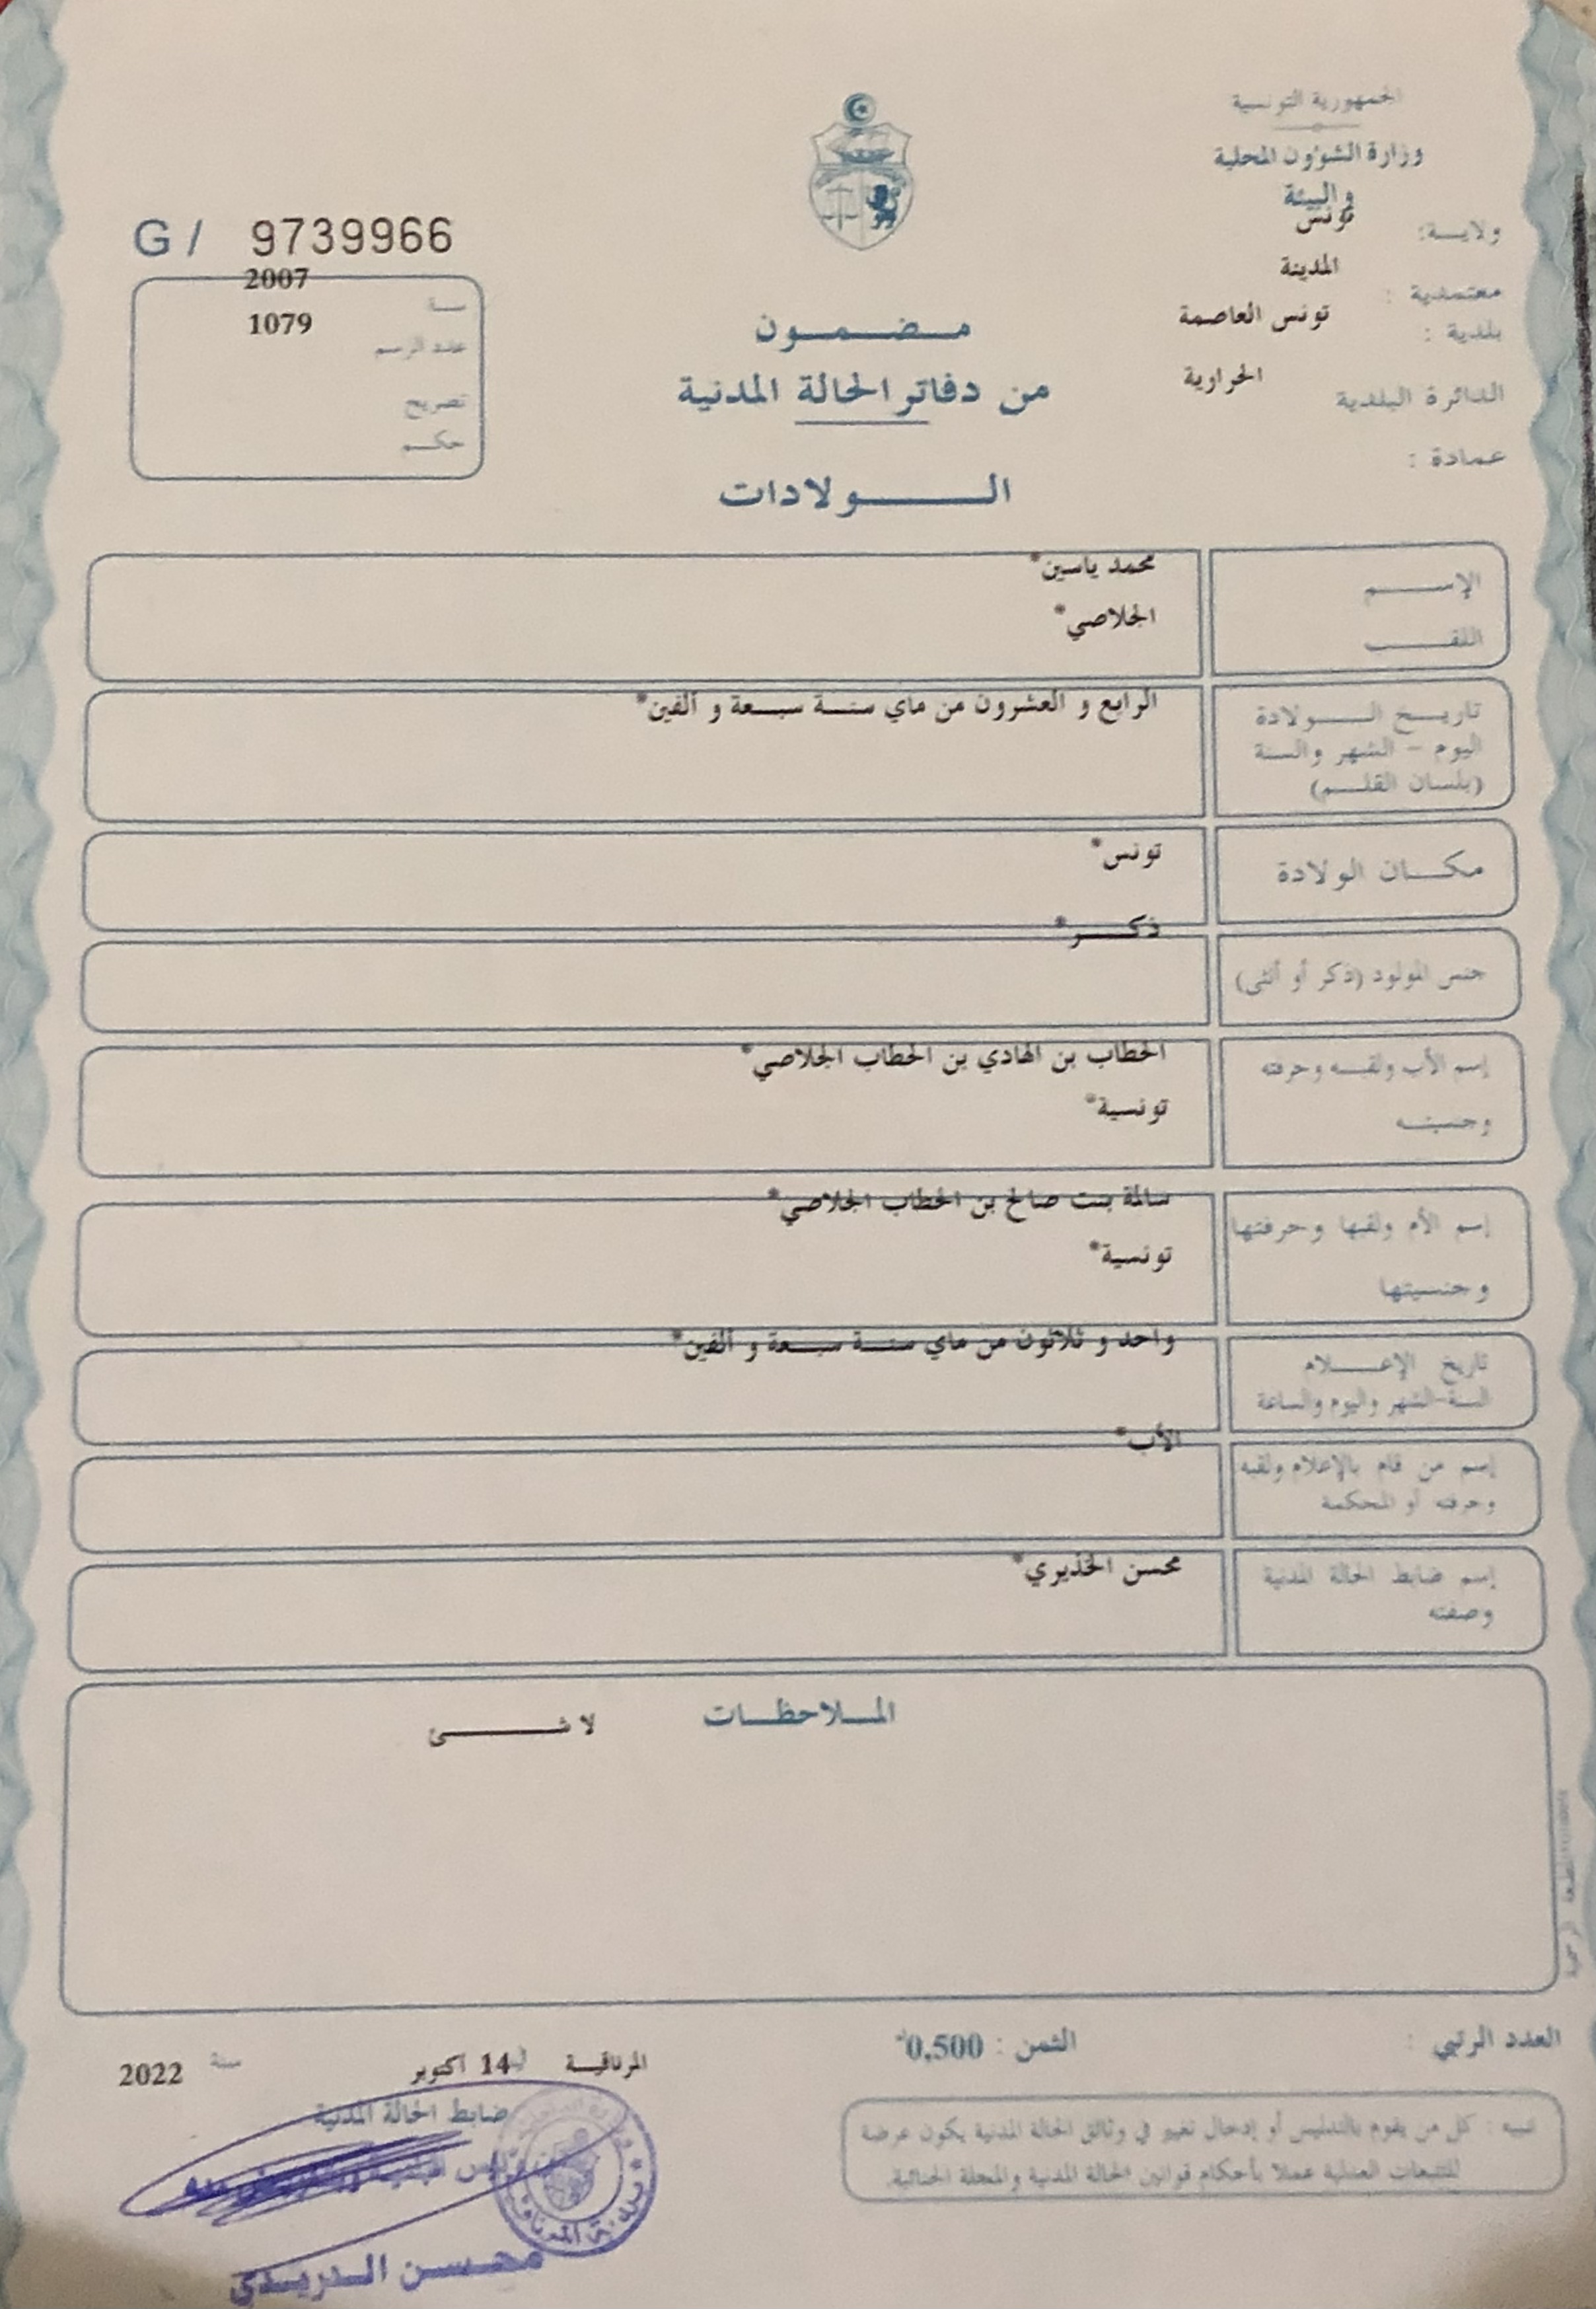 الجمهورية التونسية
وزارة الشؤون المحلية
والبيئة
ولايـــة: تونس
معتمدية : المدينة
بلدية : تونس العاصمة
الدائرة البلدية الحرارية
عمادة :
G / 9739966
سنة 2007
عدد الرسم 1079
تصريح
حكم
مضمون
من دفاتر الحالة المدنية
الولادات
الإسم محمد ياسين*
اللقب الجلاصي*
تاريخ الولادة الرابع و العشرون من ماي سنة سبعة و ألفين*
اليوم - الشهر والسنة
(بلسان القلم)
مكان الولادة تونس*
جنس المولود (ذكر أو أنثى) ذكر*
إسم الأب ولقبه وحرفته الحطاب بن الهادي بن الحطاب الجلاصي*
وجنسيته تونسية*
إسم الأم ولقبها وحرفتها سالمة بنت صالح بن الحطاب الجلاصي*
وجنسيتها تونسية*
تاريخ الإعلام واحد و ثلاثون من ماي سنة سبعة و ألفين*
السنة-الشهر واليوم والساعة
إسم من قام بالإعلام ولقبه الأب*
وحرفته أو المحكمة
إسم ضابط الحالة المدنية محسن الخذيري*
وصفته
الملاحظات لا شئ
العدد الرتبي :
الثمن : 0,500د
المرناقية لـ 14 أكتوبر سنة 2022
ضابط الحالة المدنية
تنبيه : كل من يقوم بالتدليس أو إدخال تغيير في وثائق الحالة المدنية يكون عرضة
للتتبعات العدلية عملا بأحكام قوانين الحالة المدنية والمجلة الجنائية.
محسن الدريدي